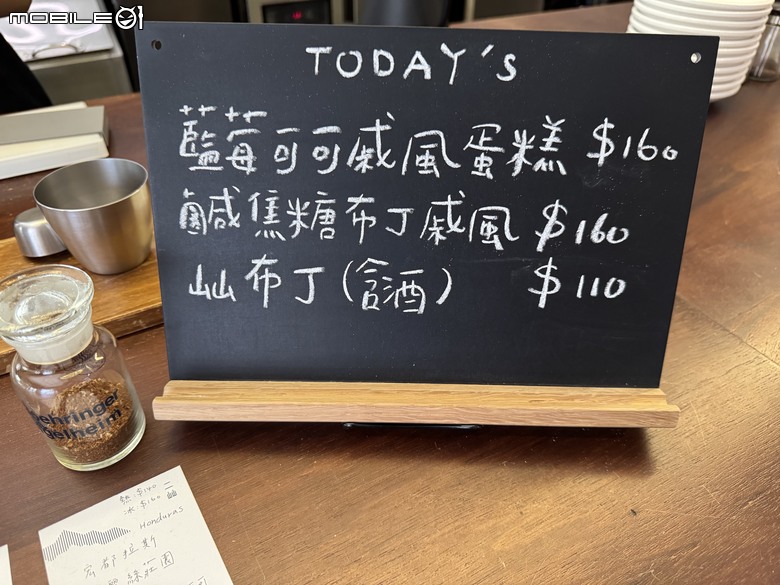 MOBILE01
TODAY'S
藍莓可可戚風蛋糕 $160
鹹焦糖布丁戚風 $160
山山布丁(含酒) $110
ehringer
gelheim
熱$140
冰$160
Honduras
宏都拉斯
綠莊園